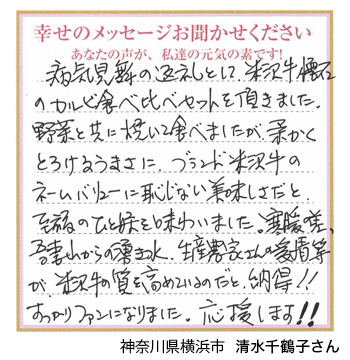 幸せのメッセージお聞かせください
あなたの声が、私達の元気の素です!
病気見舞の返礼として、米沢牛懐石
のカルビ食べ比べセットを頂きました。
野菜と共に焼いて食べましたが、柔かく
とろけるうまさに、ブランド米沢牛の
ネームバリューに恥じない美味しさだと、
至福のひと時を味わいました。寒暖の差、
吾妻山からの湧き水、生産農家さんの愛情等
が、米沢牛の質を高めているのだと、納得!!
すっかりファンになりました。応援します!!
神奈川県横浜市 清水千鶴子さん